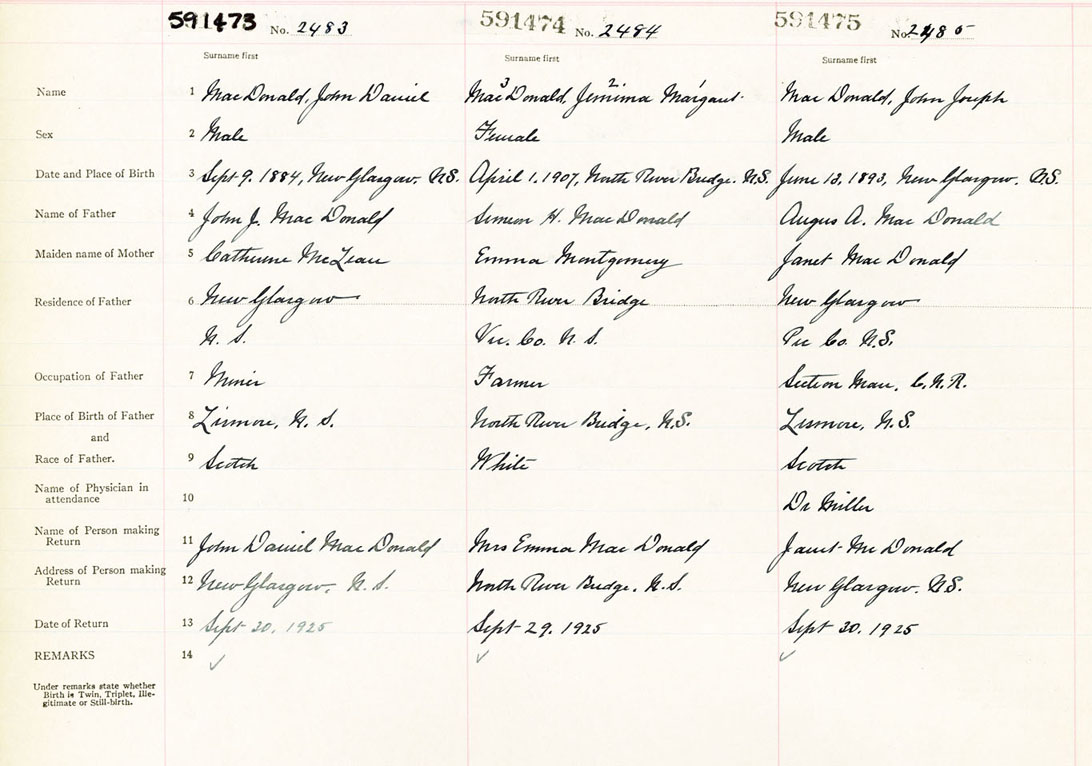 591473 No. 2483 591474 No. 2484 591475 No. 2485
Surname first Surname first Surname first
Name 1 MacDonald, John Daniel Mac³Donald, Jemima² Margaret¹ MacDonald, John Joseph
Sex 2 Male Female Male
Date and Place of Birth 3 Sept 9. 1884, New Glasgow. N.S. April 1, 1907, North River Bridge. N.S. June 13, 1893, New Glasgow. N.S.
Name of Father 4 John J. MacDonald Simeon H. MacDonald Angus A. MacDonald
Maiden name of Mother 5 Catherine McLean Emma Montgomery Janet MacDonald
Residence of Father 6 New Glasgow North River Bridge New Glasgow
N. S. Vic. Co. N. S. Pic Co. N.S.
Occupation of Father 7 Miner Farmer Section Man, C.N.R.
Place of Birth of Father 8 Lismore, N. S. North River Bridge, N.S. Lismore, N.S.
and
Race of Father. 9 Scotch White Scotch
Name of Physician in
attendance 10 Dr Miller
Name of Person making
Return 11 John Daniel MacDonald Mrs Emma MacDonald Janet McDonald
Address of Person making
Return 12 New Glasgow, N. S. North River Bridge, N.S. New Glasgow. N.S.
Date of Return 13 Sept 30, 1925 Sept 29. 1925 Sept 30. 1925
REMARKS 14 ✓ ✓ ✓
Under remarks state whether
Birth is Twin, Triplet, Ille-
gitimate or Still-birth.